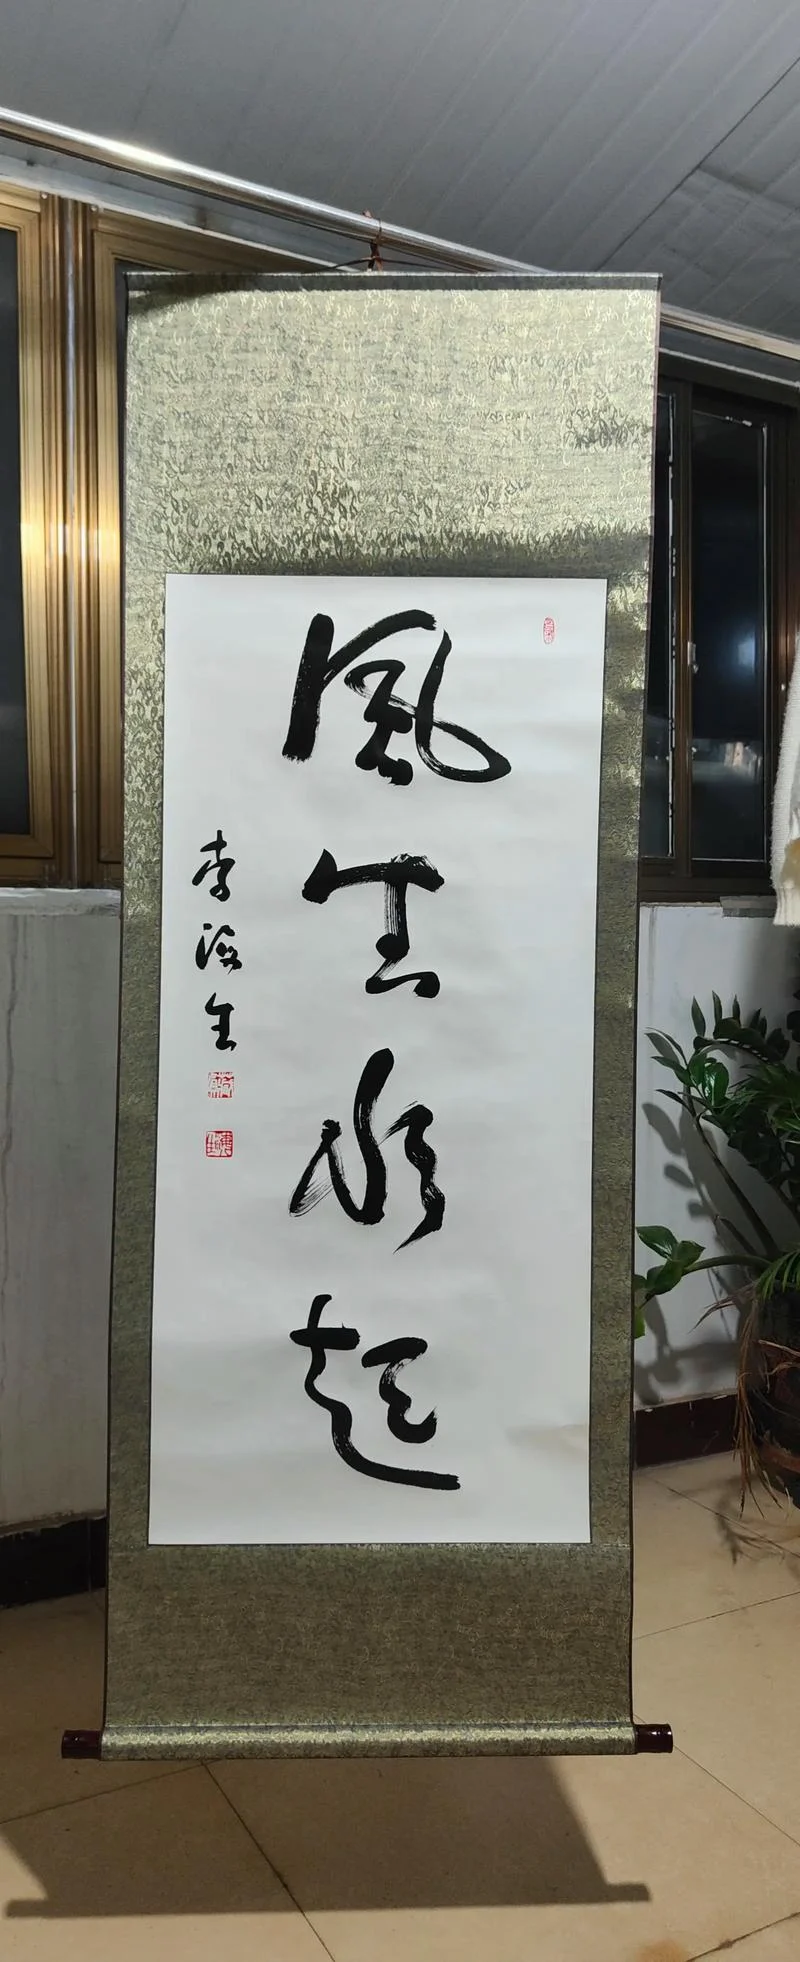 風生水起
李海生